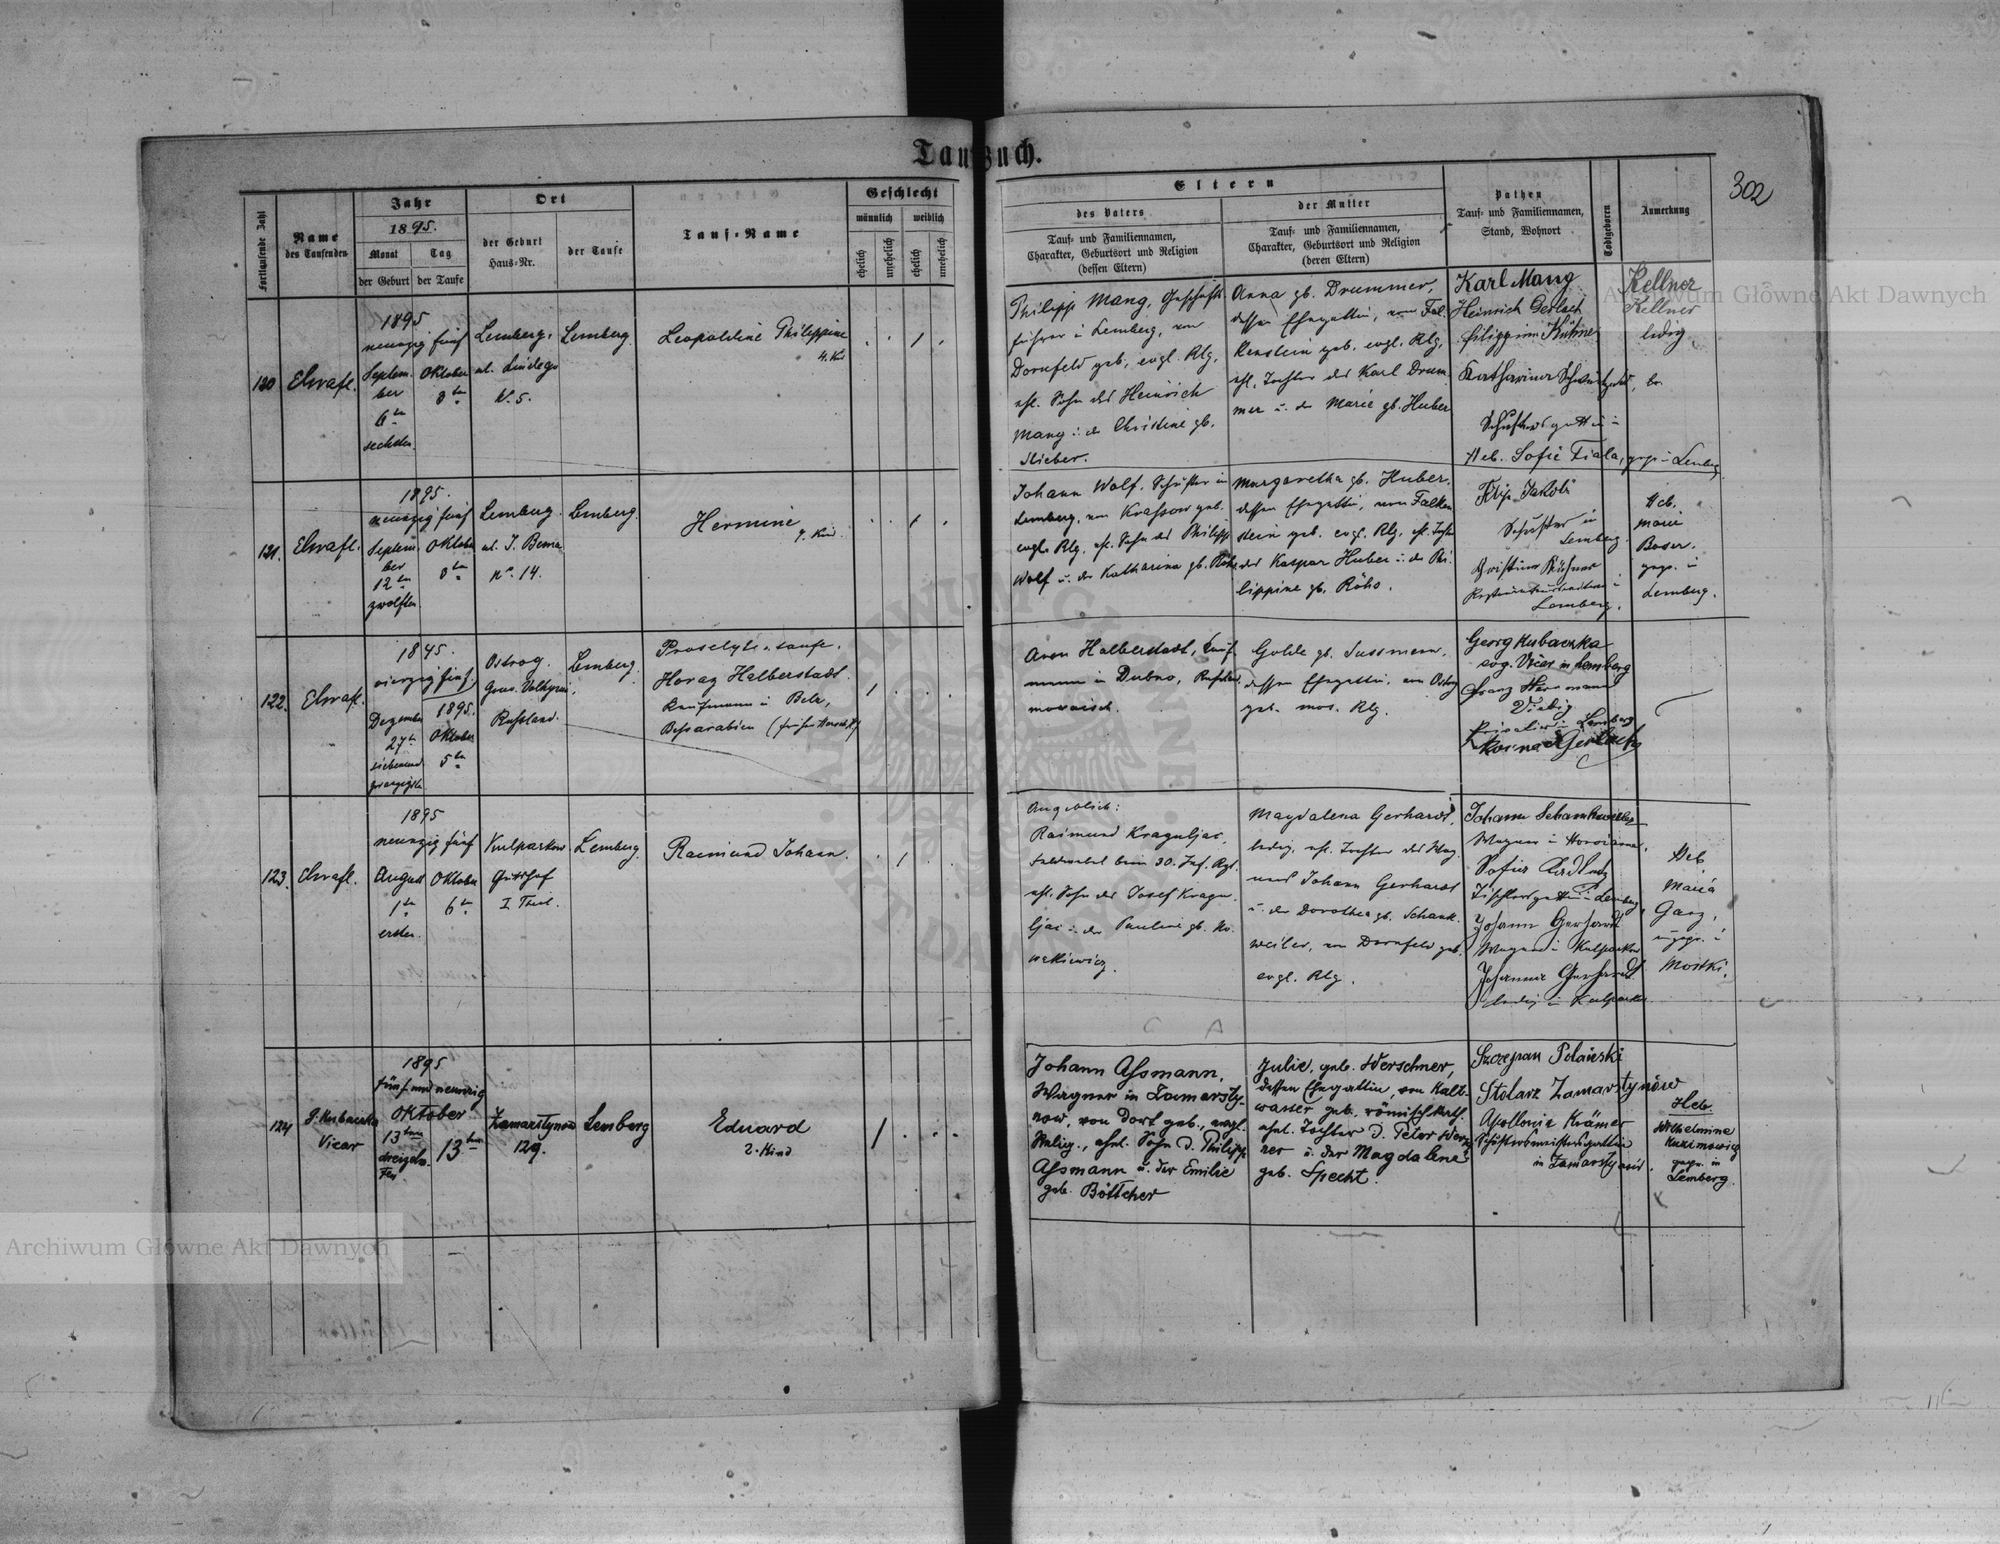 Taufbuch.
302
Fortlaufende Zahl
Name
des Taufenden
Jahr
1895.
Monat
Tag
der Geburt
der Taufe
Ort
der Geburt
Haus-Nr.
der Taufe
Tauf-Name
Geschlecht
männlich
weiblich
ehelich
unehelich
ehelich
unehelich
Eltern
des Vaters
Tauf- und Familiennamen,
Charakter, Geburtsort und Religion
(dessen Eltern)
der Mutter
Tauf- und Familiennamen,
Charakter, Geburtsort und Religion
(deren Eltern)
Pathen
Tauf- und Familiennamen,
Stand, Wohnort
Todtgeboren
Anmerkung
120
1895
neunzig fünf
Septem-
ber
6te
sechsten
Oktober
Lemberg,
ul. Lindego
N. 5.
Lemberg.
Leopoldine Philippine
Philipp Mang, Geschäfts-
führer in Lemberg, von
Dornfeld geb., evgl. Rlg.
ehl. Sohn des Heinrich
Mang u. der Christine gb.
Anna gb. Drummer,
dessen Ehegattin, von Fal-
kenstein geb. evgl. Rlg.
ehl. Tochter des Karl Drum-
mer u. der Marie gb. Huber
Karl Mang
Heinrich Gerlach
Filippine Kühner
Katharina
Heb. Sofie Fiala, gepr. in Lemberg
Kellner
Kellner
ledig
121.
1895.
neunzig fünf
Septem-
ber
12te
zwölften
Oktober
Lemberg.
ul. J. Bema
No. 14.
Lemberg.
Hermine
Johann Wolf, Schuster in
Lemberg, von Krassow geb.
evgl. Rlg. ehl. Sohn des Philipp
Wolf u. der Katharina gb.
Margaretha gb. Huber,
dessen Ehegattin, von Falken-
stein geb. evgl. Rlg. ehl. Tochter
des Kaspar Huber u. der Phi-
lippine gb.
Filip Jakobi
Schuster in
Lemberg.
Christine Kühner
Lemberg.
Heb.
Marie
Boser.
gepr. in
Lemberg.
122.
1845.
vierzig fünf
Dezember
27te
siebenund
zwanzigste
1895.
Oktober
5te
Ostrog.
Gouv. Volhynien,
Russland.
Lemberg.
Proselyten-taufe.
Horaz Halberstadt
Kaufmann in
Bessarabien
Aron Halberstadt, Kauf-
mann in Dubno, Russland.
mosaisch.
Golde gb. Sussmann,
dessen Ehegattin, von Ostrog
geb. mos. Rlg.
Georg Kubaczka
evg. Vicar in Lemberg
Franz Herrmann
Lemberg
123.
1895
neunzig fünf
August
1te
ersten.
Oktober
6te
Kulparkow.
Gutshof
I Theil.
Lemberg.
Raimund Johann.
Angeblich:
Raimund Kraguljac,
Feldwebel beim 30. Inf. Rgt.
ehl. Sohn des Josef Kragu-
ljac u. der Pauline gb. No-
wakiewicz.
Magdalena Gerhardt,
ledig, ehl. Tochter des Wag-
ners Johann Gerhardt
u. der Dorothea gb. Schank-
weiler, von Dornfeld geb.
evgl. Rlg.
Johann Schankweiler
Sofie
Tischlersgattin Lemberg
Johann Gerhardt
Wagner in Kulparkow
Johanna Gerhardt
ledig in Kulparkow.
Heb.
Maria
Garz,
ungepr. in
Mostki.
124
G. Kubaczka
Vicar
1895
fünf und neunzig
Oktober
13ten
dreizehn-
ten
13ten
Zamarstynów
129.
Lemberg
Eduard
2. Kind
Johann Assmann,
Wagner in Zamarsty-
now, von dort geb., evgl.
Relig., ehel. Sohn d. Philipp
Assmann u. der Emilie
geb. Böttcher
Julie, geb. Werschner,
dessen Ehegattin, von Kalt-
wasser geb., römisch kath.
ehel. Tochter d. Peter Wersch-
ner u. der Magdalena
geb. Specht.
Szczepan Polański
Stolarz Zamarstynów
Apollonia Krämer
Schustermeistersgattin
in Zamarstynów.
Heb.
Wilhelmine
Kuzimowicz
gepr. in
Lemberg.
Archiwum Główne Akt Dawnych
Archiwum Główne Akt Dawnych